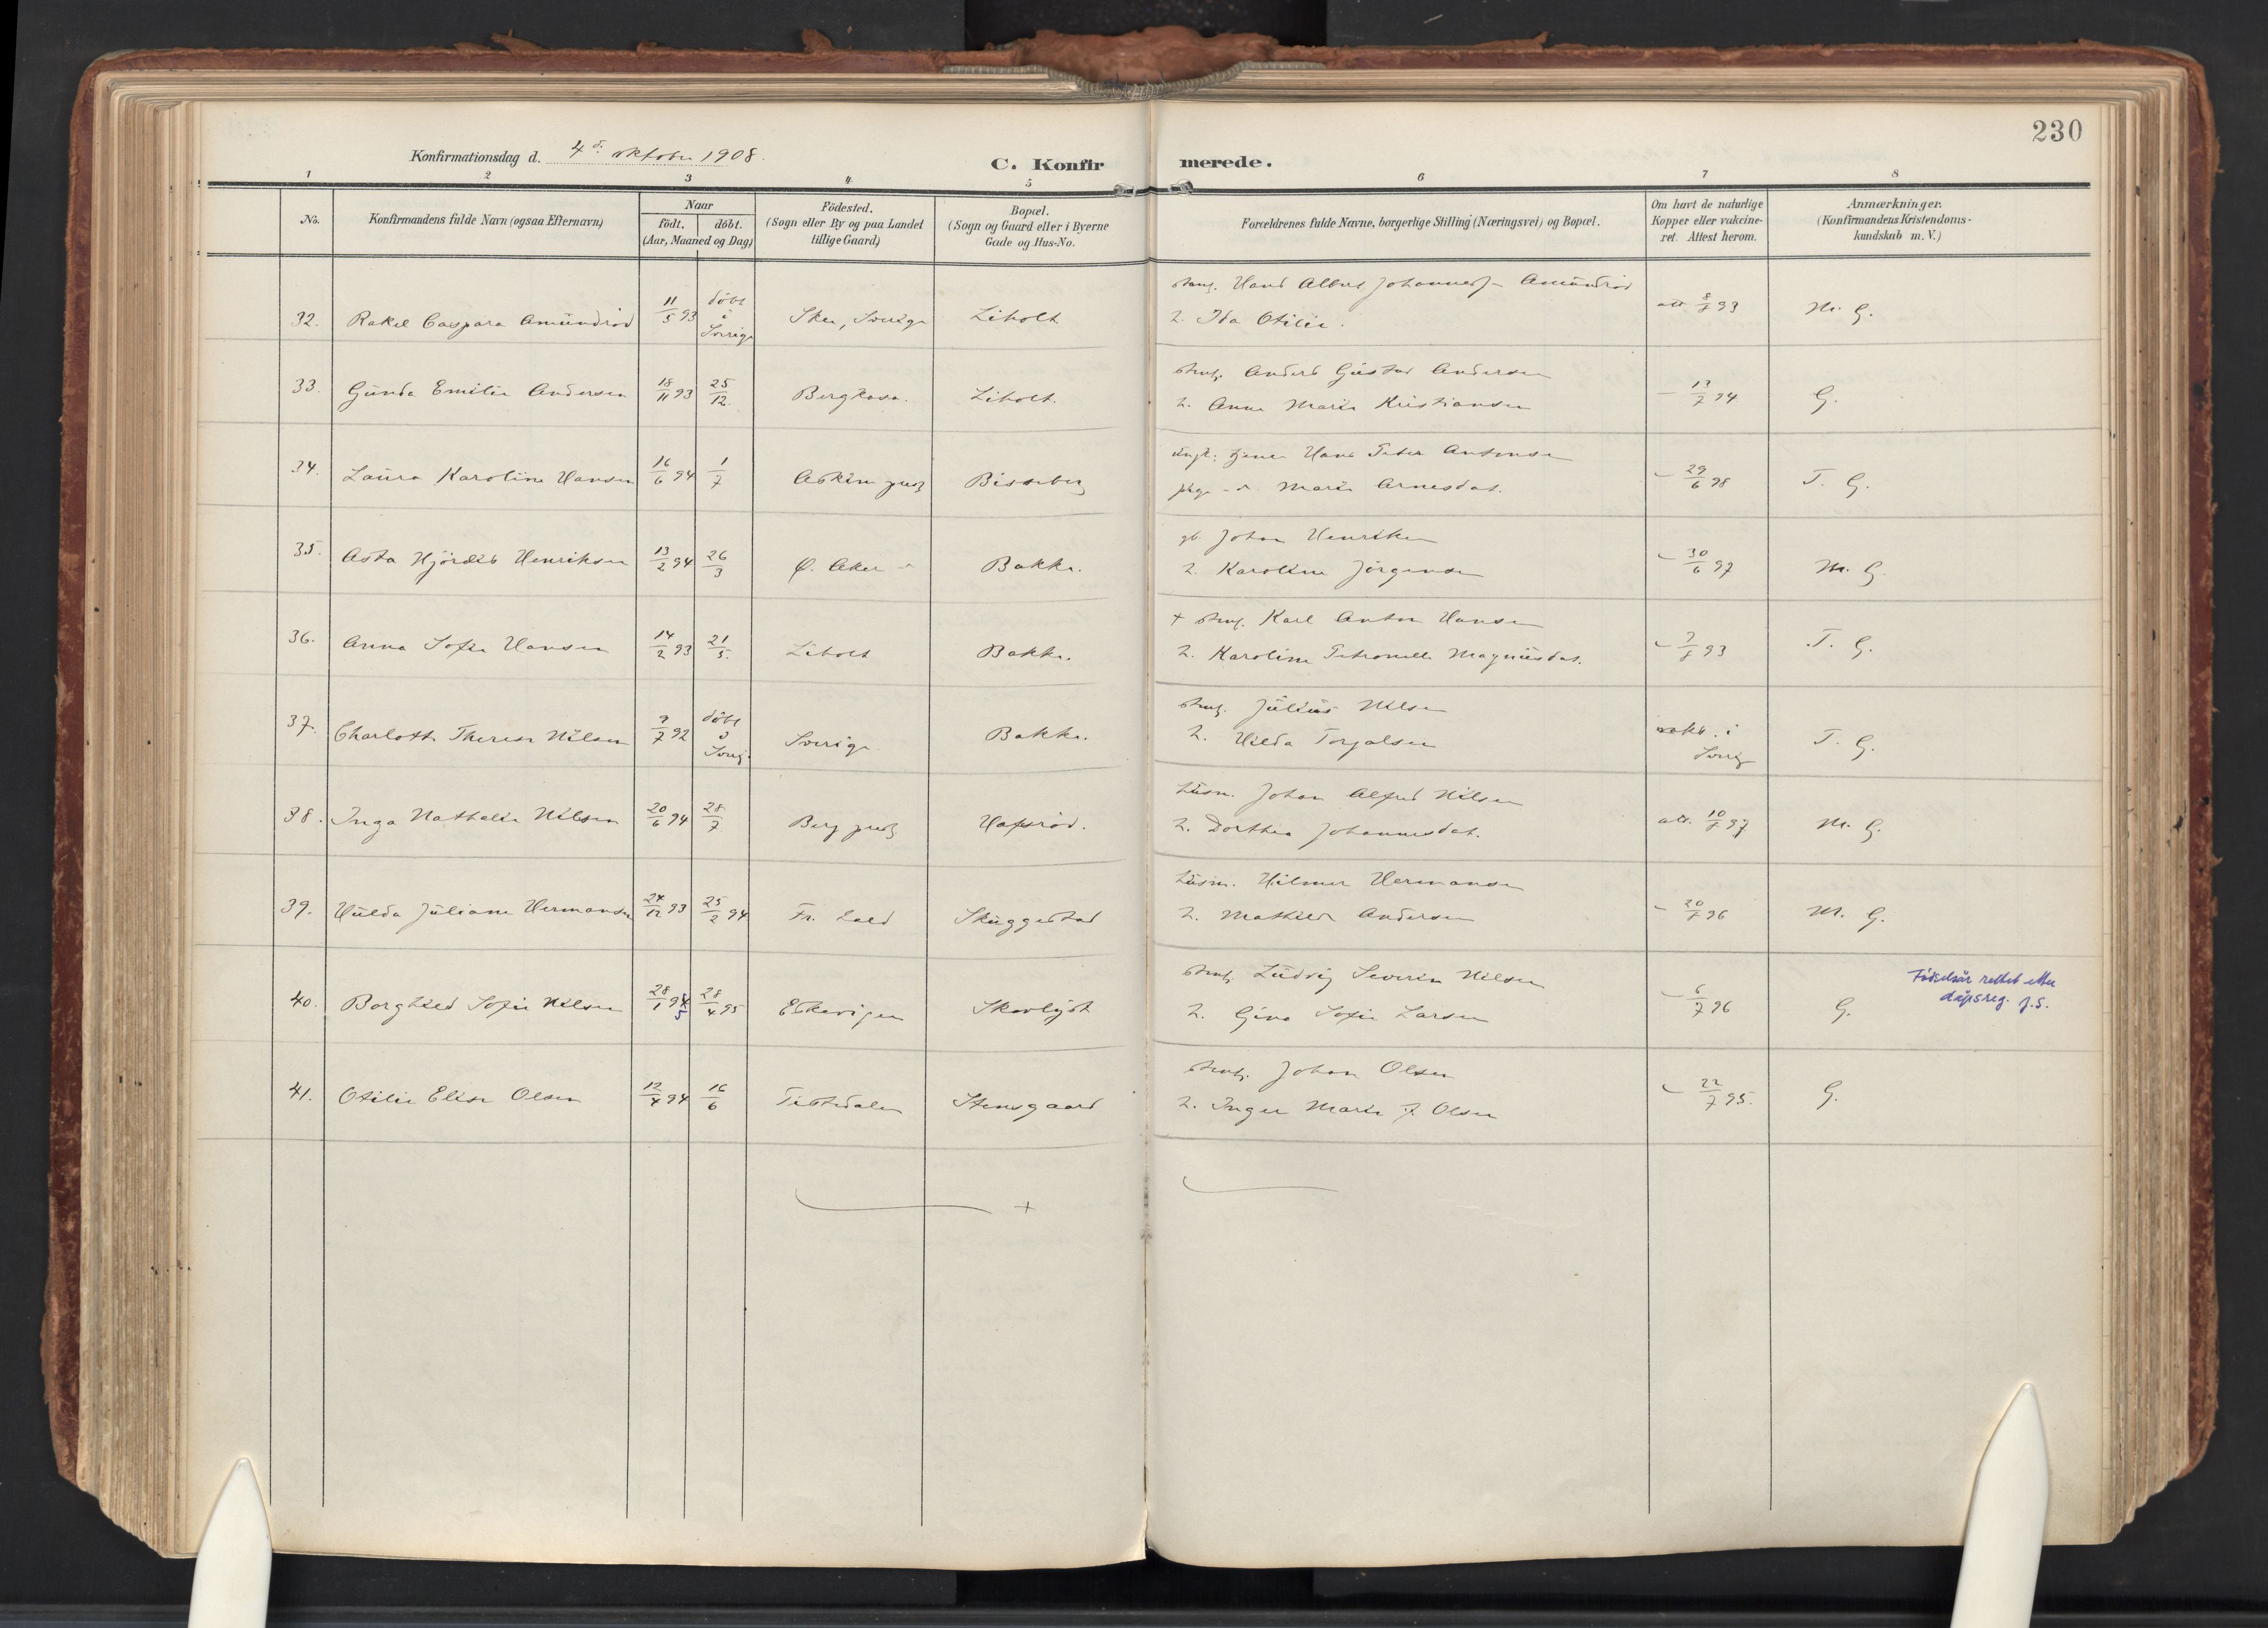 230
Konfirmationsdag d. 4de oktober 1908.
C. Konfirmerede.
1 2 3 4 5 6 7 8
No.
Konfirmandens fulde Navn (ogsaa Efternavn)
Naar
födt, döbt.
(Aar, Maaned og Dag)
Födested.
(Sogn eller By og paa Landet
tillige Gaard)
Bopæl.
(Sogn og Gaard eller i Byerne
Gade og Hus-No.
Forældrenes fulde Navne, borgerlige Stilling (Næringsvei) og Bopæl.
Om havt de naturlige
Kopper eller vakcine-
ret. Attest herom.
Anmærkninger.
(Konfirmandens Kristendoms-
kundskab m. V.)
32. Rakel Caspara Amundröd 11/5 93 döbt i Sverige Skee, Sverige Liholt
Hans Albert Johannes Amundröd
2. Ida Otilie. att 8/7 93 M. G.
33. Gunda Emilie Andersen 18/11 93 25/12. Bergkasa. Liholt.
Anders Gustav Andersen
2. Anne Marie Kristiansen - 13/7 94 G.
34. Laura Karoline Hansen 16/6 94 1/7 Askim Bisseberg
ungk. tjener Hans Peter Antonsen
pige Marie Arnesdat. - 29/6 98 T. G.
35. Asta Hjördis Henriksen 13/2 94 26/3 Ø. Aker Bakke.
gb. Johan Henriksen
2. Karoline Jörgensen - 30/6 97 M. G.
36. Anna Sofie Hansen 14/2 93 21/5. Liholt Bakke.
+ Karl Anton Hansen
2. Karoline Petronelle Magnusdat. - 7/8 93 T. G.
37. Charlotte Therese Nilsen 9/7 92 döbt i Sverig. Sverige Bakke.
Julius Nilsen
2. Hilda Torjalsen vakt. i Sverig T. G.
38. Inga Nathalie Nilsen 20/6 94 28/7 Berg Hafsröd.
husm. Johan Alfred Nilsen
2. Dorthea Johannesdat. att. 10/7 97 M. G.
39. Hulda Juliane Hermansen 24/12 93 25/2 94 Fr. hald Skuggestad
husm. Hilmer Hermansen
2. Mathilde Andersen - 20/7 96 M. G.
40. Borghild Sofie Nilsen 28/1 94 5 28/4 95 Eskevigen Skovlyst
Ludvig Severin Nilsen
2. Gina Sofie Larsen - 6/7 96 G.
Födselsår rettet etter
dåpsreg. J.S.
41. Otilie Elise Olsen 12/4 94 16/6 Tistedalen Stensgaard
Johan Olsen
2. Inger Marie J. Olsen - 22/7 95. G.